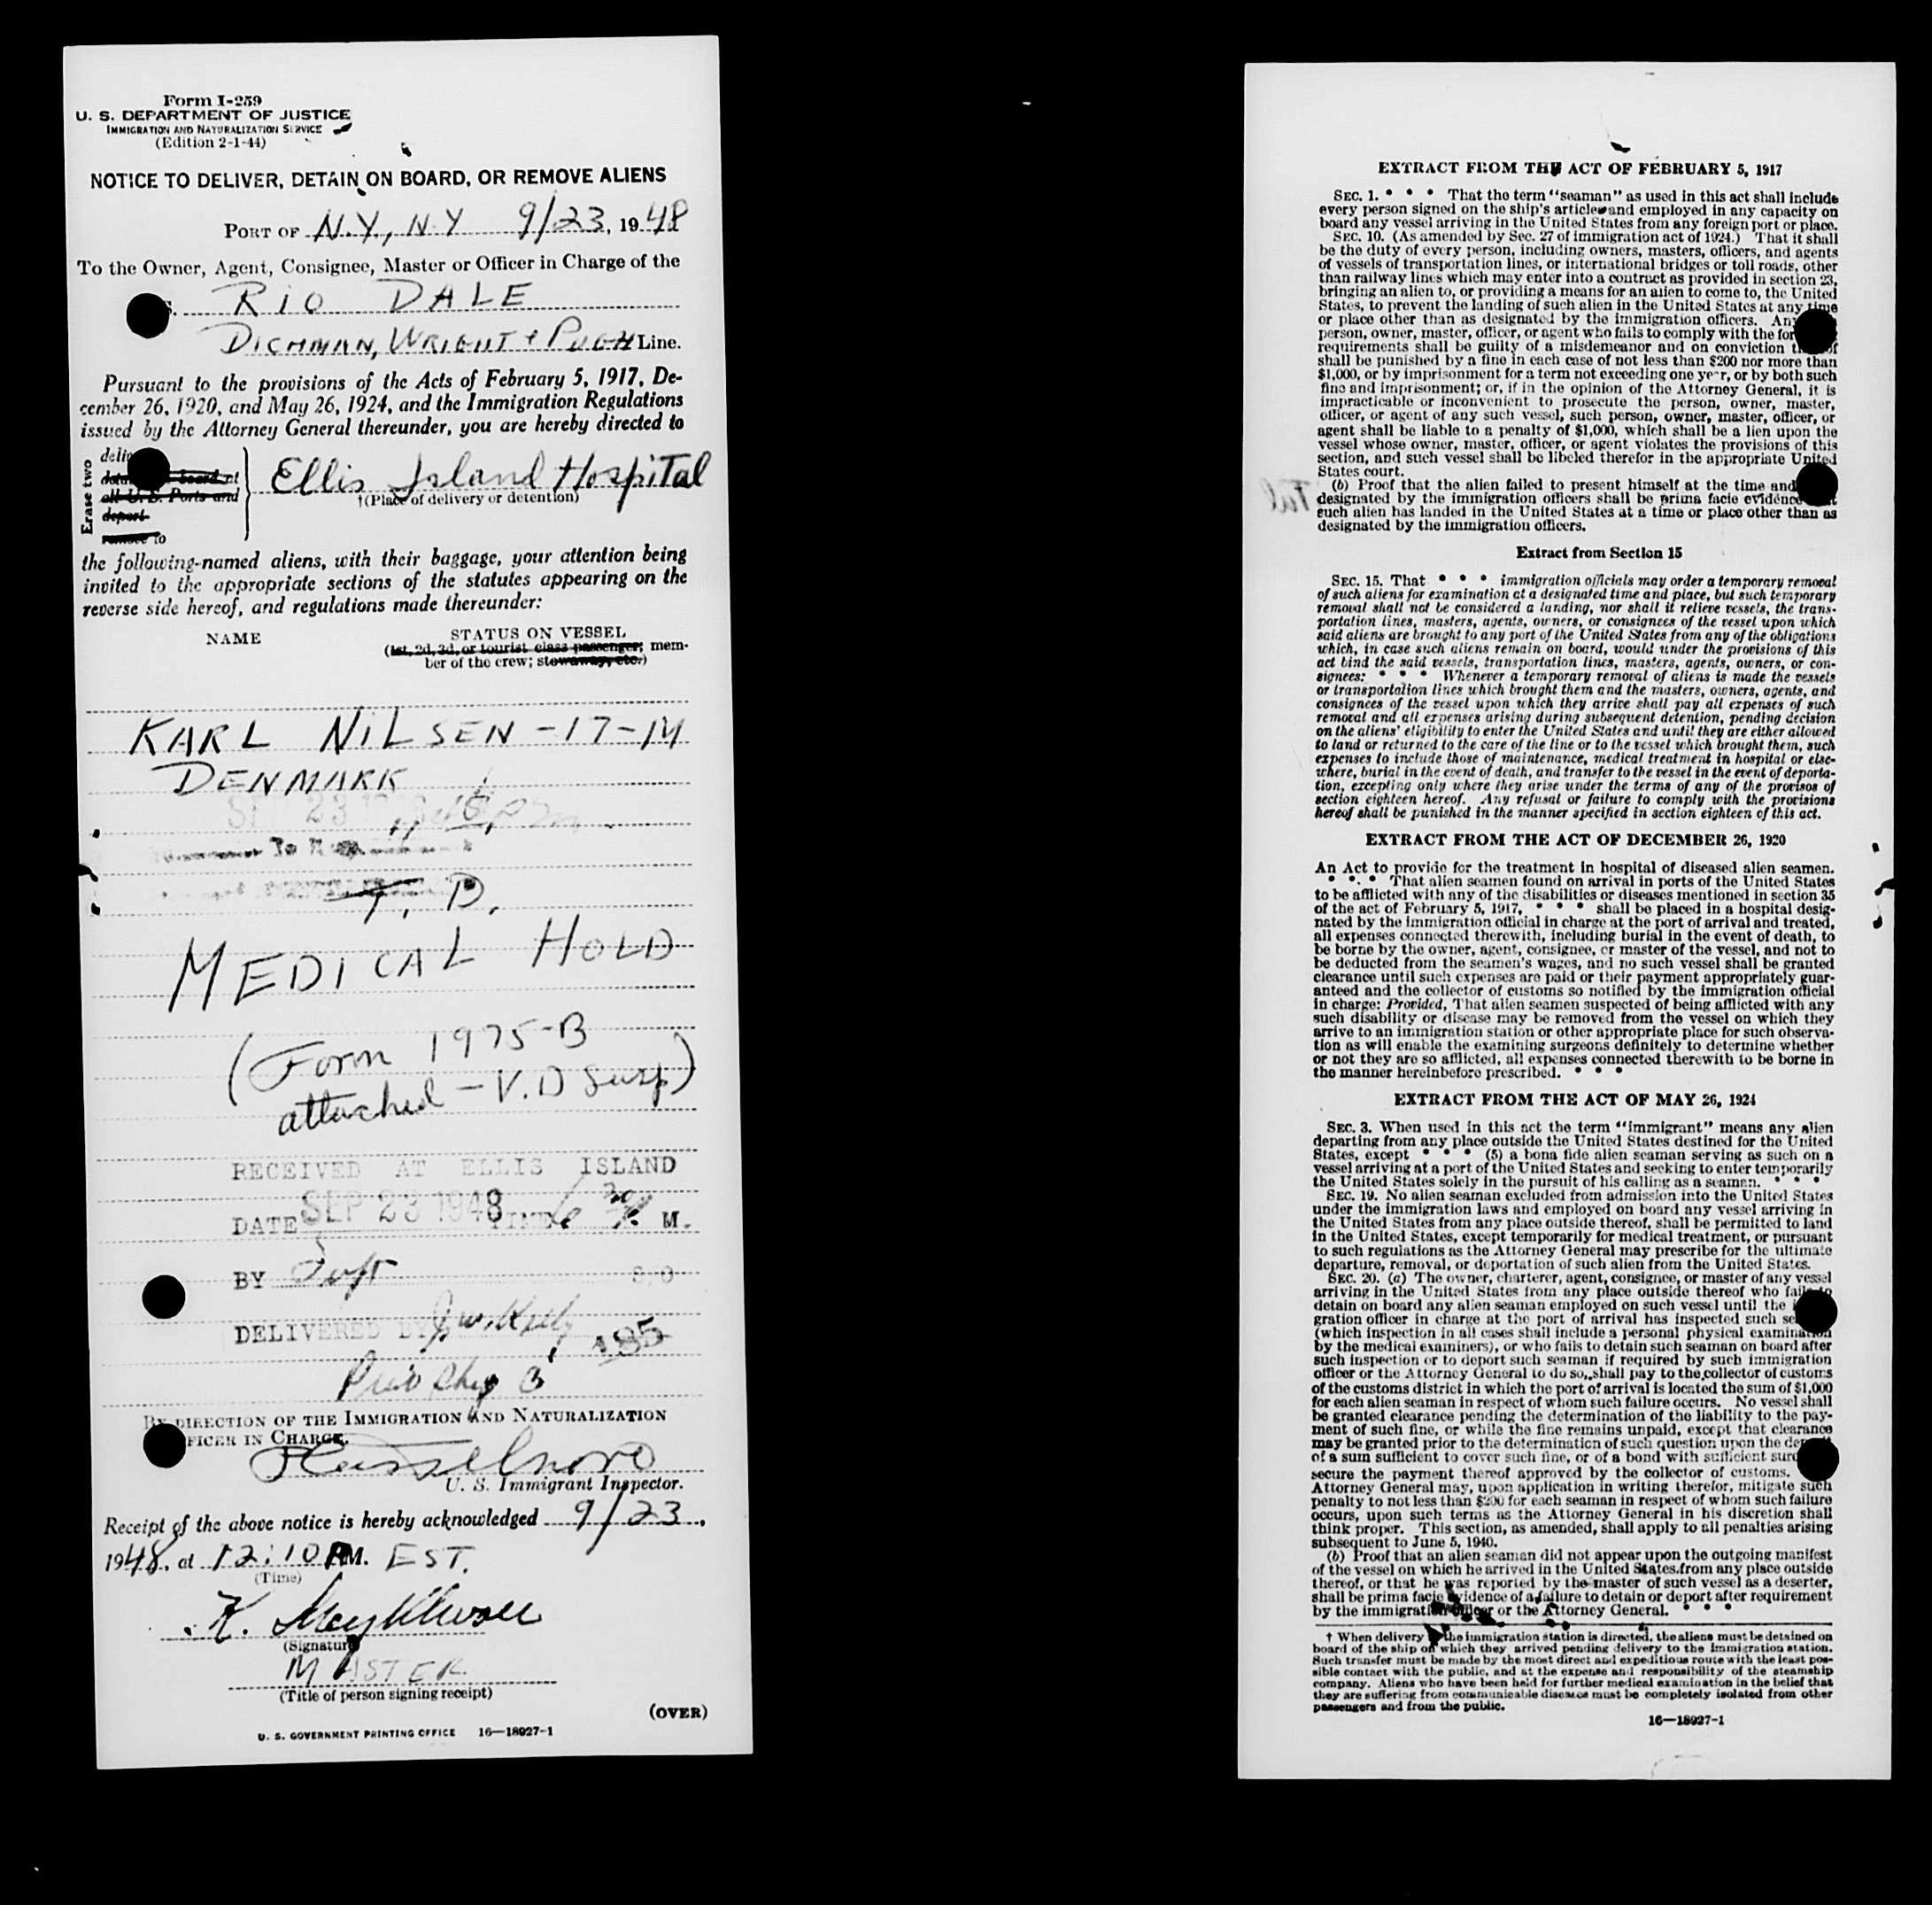 Form I-259
U. S. DEPARTMENT OF JUSTICE
IMMIGRATION AND NATURALIZATION SERVICE
(Edition 2-1-44)
NOTICE TO DELIVER, DETAIN ON BOARD, OR REMOVE ALIENS
PORT OF N.Y., N.Y 9/23, 1948
To the Owner, Agent, Consignee, Master or Officer in Charge of the
S. RIO DALE
DICHMAN, WRIGHT + PUGH Line.
Pursuant to the provisions of the Acts of February 5, 1917, De-
cember 26, 1920, and May 26, 1924, and the Immigration Regulations
issued by the Attorney General thereunder, you are hereby directed to
Erase two
board at
all U. S. Ports and
depart
remove to
Ellis Island Hospital
†(Place of delivery or detention)
the following-named aliens, with their baggage, your attention being
invited to the appropriate sections of the statutes appearing on the
reverse side hereof, and regulations made thereunder:
NAME
STATUS ON VESSEL
(1st, 2d, 3d, or tourist class passenger; mem-
ber of the crew; stowaway, etc.)
KARL NILSEN - 17 - M
DENMARK
SEP 23
T. D.
MEDICAL HOLD
(Form 1975-B
attached - V.D Susp)
RECEIVED AT ELLIS ISLAND
DATE SEP 23 1948 TIME 6 30 P. M.
BY
DELIVERED BY
185
BY DIRECTION OF THE IMMIGRATION AND NATURALIZATION
OFFICER IN CHARGE.
U. S. Immigrant Inspector.
Receipt of the above notice is hereby acknowledged 9/23,
1948, at 12:10 PM. EST.
(Time)
K.
(Signature)
MASTER
(Title of person signing receipt)
(OVER)
U. S. GOVERNMENT PRINTING OFFICE 16—18927-1
EXTRACT FROM THE ACT OF FEBRUARY 5, 1917
SEC. 1. * * * That the term "seaman" as used in this act shall include
every person signed on the ship's articles and employed in any capacity on
board any vessel arriving in the United States from any foreign port or place.
SEC. 10. (As amended by Sec. 27 of immigration act of 1924.) That it shall
be the duty of every person, including owners, masters, officers, and agents
of vessels of transportation lines, or international bridges or toll roads, other
than railway lines which may enter into a contract as provided in section 23,
bringing an alien to, or providing a means for an alien to come to, the United
States, to prevent the landing of such alien in the United States at any time
or place other than as designated by the immigration officers. Any
person, owner, master, officer, or agent who fails to comply with the for
requirements shall be guilty of a misdemeanor and on conviction thereof
shall be punished by a fine in each case of not less than $200 nor more than
$1,000, or by imprisonment for a term not exceeding one year, or by both such
fine and imprisonment; or, if in the opinion of the Attorney General, it is
impracticable or inconvenient to prosecute the person, owner, master,
officer, or agent of any such vessel, such person, owner, master, officer, or
agent shall be liable to a penalty of $1,000, which shall be a lien upon the
vessel whose owner, master, officer, or agent violates the provisions of this
section, and such vessel shall be libeled therefor in the appropriate United
States court.
(b) Proof that the alien failed to present himself at the time and
designated by the immigration officers shall be prima facie evidence that
such alien has landed in the United States at a time or place other than as
designated by the immigration officers.
Extract from Section 15
SEC. 15. That * * * immigration officials may order a temporary removal
of such aliens for examination at a designated time and place, but such temporary
removal shall not be considered a landing, nor shall it relieve vessels, the trans-
portation lines, masters, agents, owners, or consignees of the vessel upon which
said aliens are brought to any port of the United States from any of the obligations
which, in case such aliens remain on board, would under the provisions of this
act bind the said vessels, transportation lines, masters, agents, owners, or con-
signees: * * * Whenever a temporary removal of aliens is made the vessels
or transportation lines which brought them and the masters, owners, agents, and
consignees of the vessel upon which they arrive shall pay all expenses of such
removal and all expenses arising during subsequent detention, pending decision
on the aliens' eligibility to enter the United States and until they are either allowed
to land or returned to the care of the line or to the vessel which brought them, such
expenses to include those of maintenance, medical treatment in hospital or else-
where, burial in the event of death, and transfer to the vessel in the event of deporta-
tion, excepting only where they arise under the terms of any of the provisos of
section eighteen hereof. Any refusal or failure to comply with the provisions
hereof shall be punished in the manner specified in section eighteen of this act.
EXTRACT FROM THE ACT OF DECEMBER 26, 1920
An Act to provide for the treatment in hospital of diseased alien seamen.
* * * That alien seamen found on arrival in ports of the United States
to be afflicted with any of the disabilities or diseases mentioned in section 35
of the act of February 5, 1917, * * * shall be placed in a hospital desig-
nated by the immigration official in charge at the port of arrival and treated,
all expenses connected therewith, including burial in the event of death, to
be borne by the owner, agent, consignee, or master of the vessel, and not to
be deducted from the seamen's wages, and no such vessel shall be granted
clearance until such expenses are paid or their payment appropriately guar-
anteed and the collector of customs so notified by the immigration official
in charge: Provided, That alien seamen suspected of being afflicted with any
such disability or disease may be removed from the vessel on which they
arrive to an immigration station or other appropriate place for such observa-
tion as will enable the examining surgeons definitely to determine whether
or not they are so afflicted, all expenses connected therewith to be borne in
the manner hereinbefore prescribed. * * *
EXTRACT FROM THE ACT OF MAY 26, 1924
SEC. 3. When used in this act the term "immigrant" means any alien
departing from any place outside the United States destined for the United
States, except * * * (5) a bona fide alien seaman serving as such on a
vessel arriving at a port of the United States and seeking to enter temporarily
the United States solely in the pursuit of his calling as a seaman. * * *
SEC. 19. No alien seaman excluded from admission into the United States
under the immigration laws and employed on board any vessel arriving in
the United States from any place outside thereof, shall be permitted to land
in the United States, except temporarily for medical treatment, or pursuant
to such regulations as the Attorney General may prescribe for the ultimate
departure, removal, or deportation of such alien from the United States.
SEC. 20. (a) The owner, charterer, agent, consignee, or master of any vessel
arriving in the United States from any place outside thereof who fails to
detain on board any alien seaman employed on such vessel until the
gration officer in charge at the port of arrival has inspected such
(which inspection in all cases shall include a personal physical examination
by the medical examiners), or who fails to detain such seaman on board after
such inspection or to deport such seaman if required by such immigration
officer or the Attorney General to do so, shall pay to the collector of customs
of the customs district in which the port of arrival is located the sum of $1,000
for each alien seaman in respect of whom such failure occurs. No vessel shall
be granted clearance pending the determination of the liability to the pay-
ment of such fine, or while the fine remains unpaid, except that clearance
may be granted prior to the determination of such question upon the deposit
of a sum sufficient to cover such fine, or of a bond with sufficient
secure the payment thereof approved by the collector of customs.
Attorney General may, upon application in writing therefor, mitigate such
penalty to not less than $200 for each seaman in respect of whom such failure
occurs, upon such terms as the Attorney General in his discretion shall
think proper. This section, as amended, shall apply to all penalties arising
subsequent to June 5, 1940.
(b) Proof that an alien seaman did not appear upon the outgoing manifest
of the vessel on which he arrived in the United States from any place outside
thereof, or that he was reported by the master of such vessel as a deserter,
shall be prima facie evidence of a failure to detain or deport after requirement
by the immigration officer or the Attorney General. * * *
† When delivery the immigration station is directed, the aliens must be detained on
board of the ship on which they arrived pending delivery to the immigration station.
Such transfer must be made by the most direct and expeditious route with the least pos-
sible contact with the public, and at the expense and responsibility of the steamship
company. Aliens who have been held for further medical examination in the belief that
they are suffering from communicable diseases must be completely isolated from other
passengers and from the public.
16—18927-1